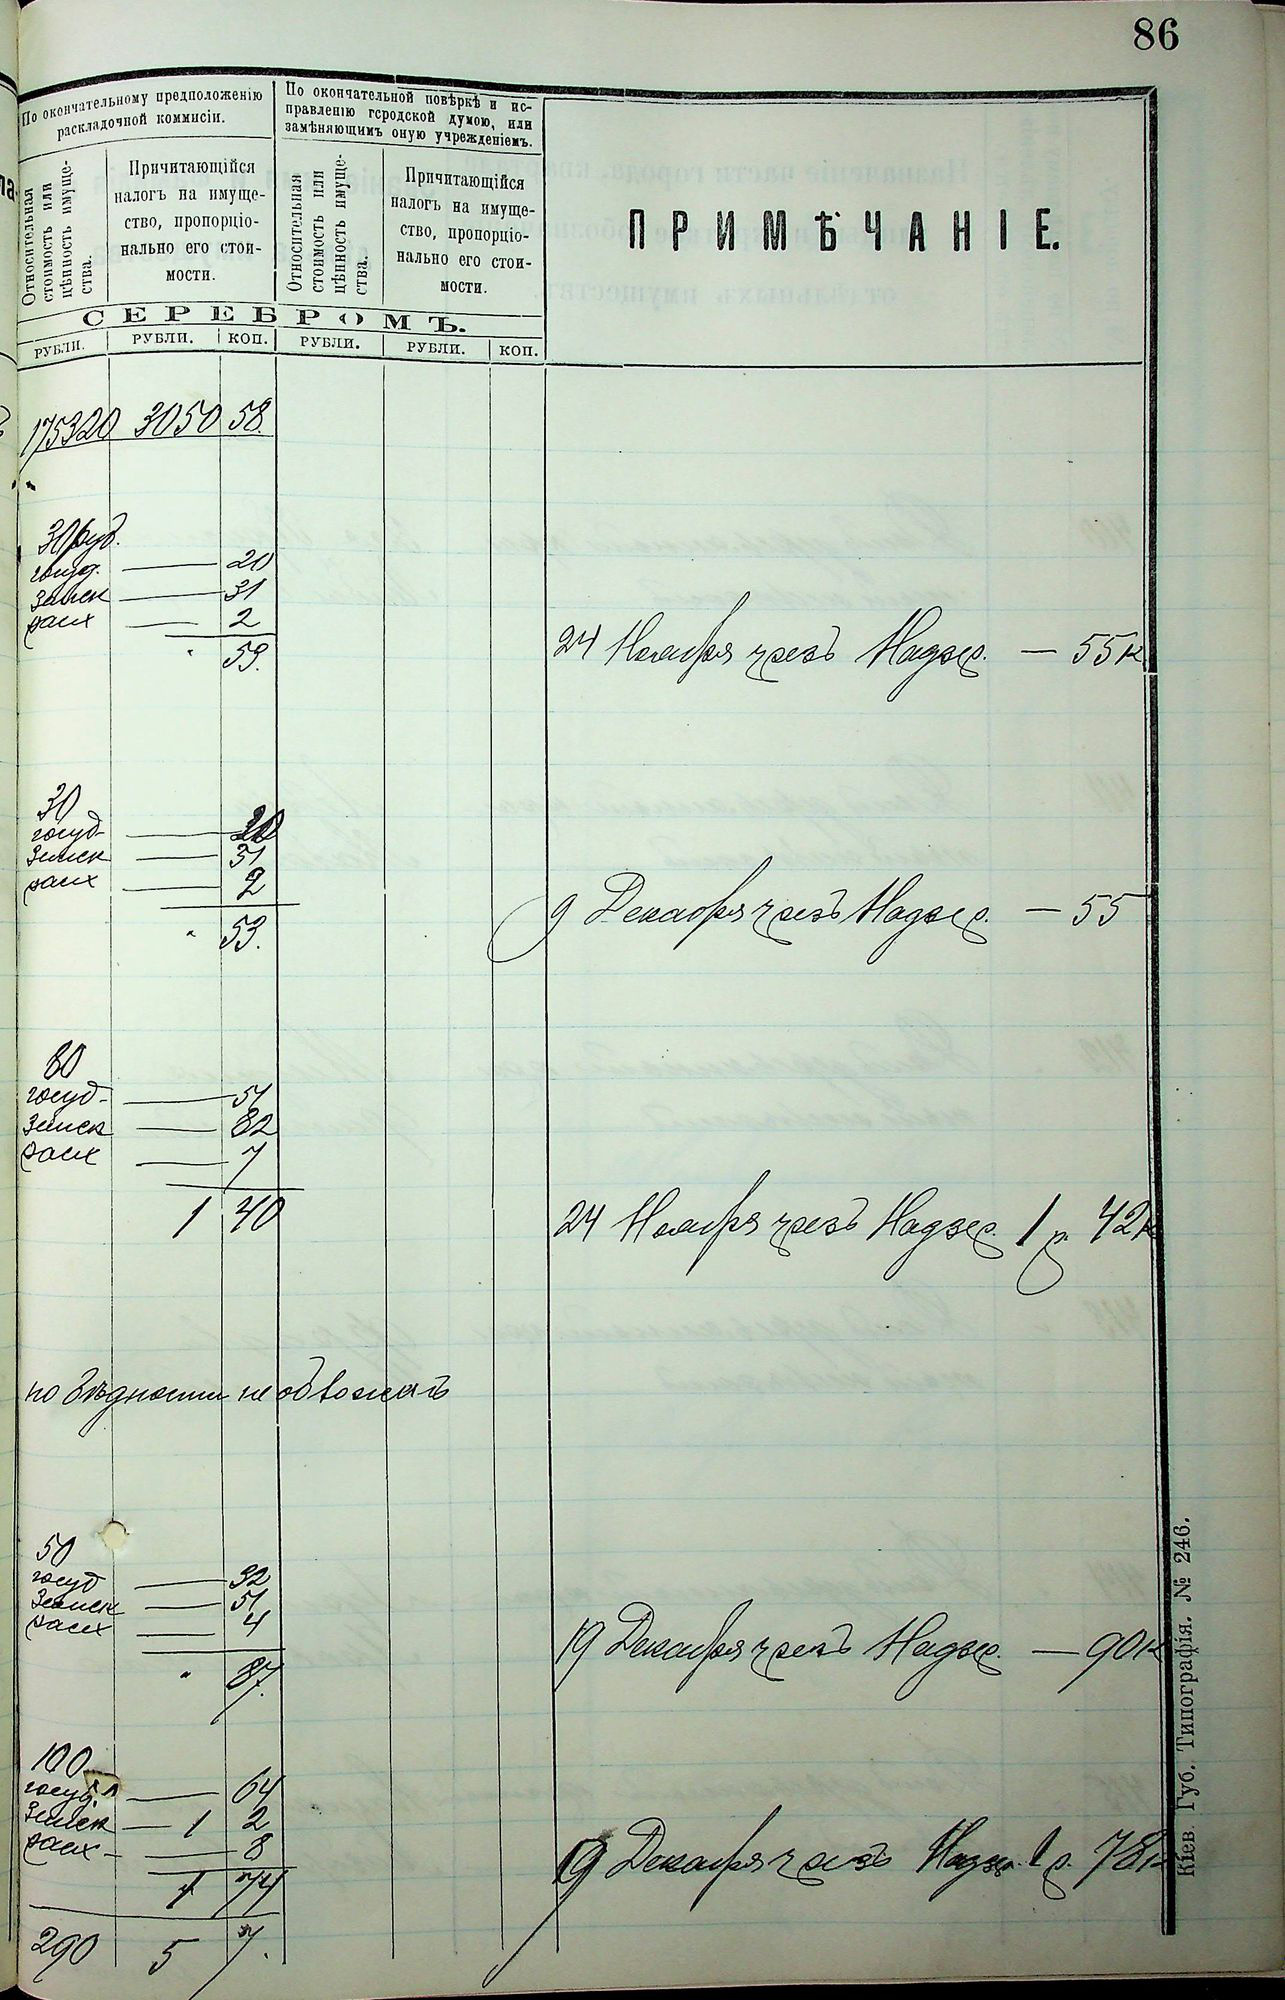 86
По окончательному предположенію
раскладочной коммисіи.
По окончательной повѣркѣ и ис-
правленію городской думою, или
замѣняющимъ оную учрежденіемъ.
Относительная
стоимость или
цѣнность имуще-
ства.
Причитающійся
налогъ на имуще-
ство, пропорціо-
нально его стои-
мости.
Относительная
стоимость или
цѣнность имуще-
ства.
Причитающійся
налогъ на имуще-
ство, пропорціо-
нально его стои-
мости.
ПРИМѢЧАНІЕ.
СЕРЕБРОМЪ.
РУБЛИ. РУБЛИ. КОП. РУБЛИ. РУБЛИ. КОП.
175320 3050 58.
30 руб.
госуд. — 20
Земск — 31
расх — 2
" 53.
24 Ноября чрезъ Надзер. — 55 к
30
госуд — 20
Земск — 31
расх — 2
" 53.
9 Декабря чрезъ Надзер. — 55
80
госуд — 51
Земск — 82
расх — 7
1 40
24 Ноября чрезъ Надзер. 1 р. 42 к
по бѣдности не обложенъ
50
госуд — 32
Земск — 51
расх — 4
" 87.
19 Декабря чрезъ Надзер. — 90 к
100
госуд. — 64
Земск — 1 2
расх — 8
1 74
9 Декабря чрезъ Надзер. 1 р. 78 к
290 5 7.
Кіев. Губ. Типографія. № 246.